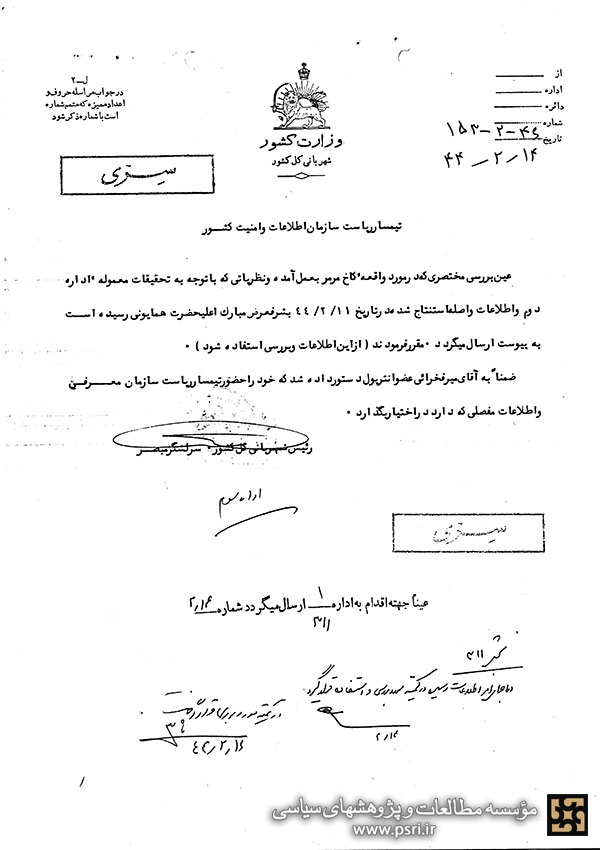 از
اداره
دائره
شماره ۱۵۳-۲-۴۶
تاریخ ۴۴-۲-۱۴
ل-۲
در جواب مراسله حروف و
اعداد ممیزه که متمم شماره
است با شماره ذکر شود
وزارت کشور
شهربانی کل کشور
سری
تیمسار ریاست سازمان اطلاعات و امنیت کشور
عین بررسی مختصری که در مورد واقعه کاخ مرمر بعمل آمده و نظریاتی که با توجه به تحقیقات معموله اداره
دوم و اطلاعات واصله استنتاج شده در تاریخ ۴۴/۲/۱۱ بشرفعرض مبارك اعلیحضرت همایونی رسیده است
به پیوست ارسال میگردد ۰ مقرر فرمودند ( از این اطلاعات و بررسی استفاده شود ) ۰
ضمناً به آقای میرفخرائی عضو انترپول دستور داده شد که خود را حضور تیمسار ریاست سازمان معرفی
و اطلاعات مفصلی که دارد در اختیار بگذارد ۰
رئیس شهربانی کل کشور ۰ سرلشگر مبصر
اداره سوم
سری
عیناً جهته اقدام به اداره ۱ ارسال میگردد شماره ۲/۱۴
۳۱۱
۳۱۱
۲/۱۴
۴۴/۲/۱۶
مؤسسه مطالعات و پژوهشهای سیاسی
www.psri.ir